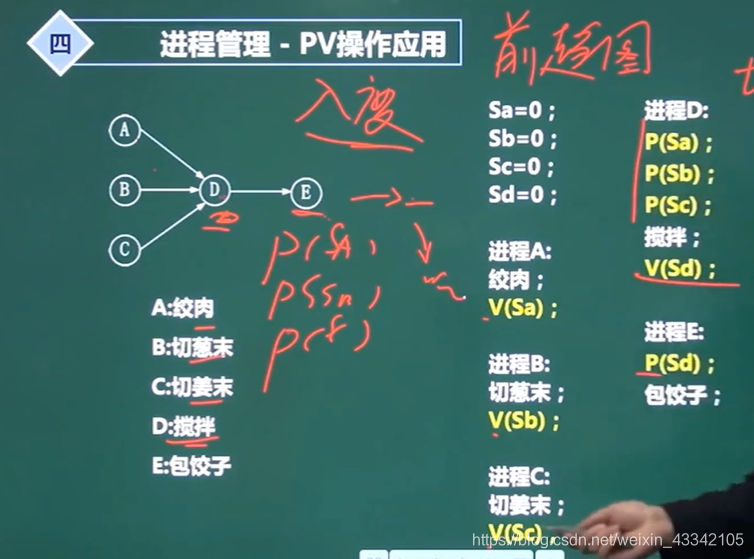 四
进程管理 - PV操作应用
前趋图
入度
A
B
C
D
E
P(SA)
A:绞肉
B:切葱末
C:切姜末
D:搅拌
E:包饺子
Sa=0；
Sb=0；
Sc=0；
Sd=0；
进程A:
绞肉；
V(Sa)；
进程B:
切葱末；
V(Sb)；
进程C:
切姜末；
V(Sc)；
进程D:
P(Sa)；
P(Sb)；
P(Sc)；
搅拌；
V(Sd)；
进程E:
P(Sd)；
包饺子；
https://blog.csdn.net/weixin_43342105